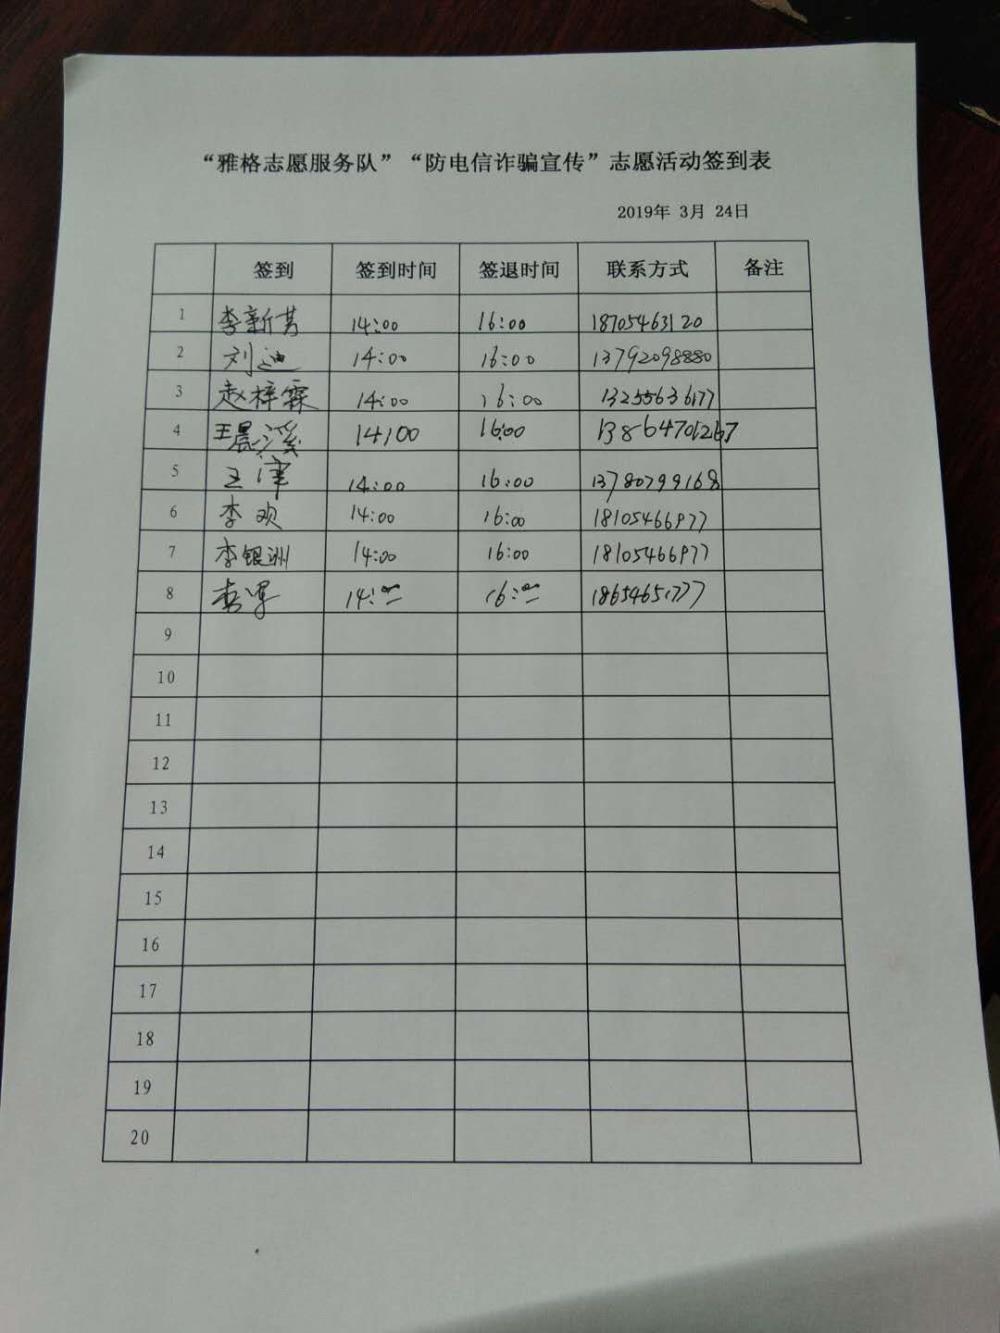 “雅格志愿服务队”“防电信诈骗宣传”志愿活动签到表
2019年 3月 24日
签到 签到时间 签退时间 联系方式 备注
1 李新芳 14:00 16:00 18705463120
2 刘迪 14:00 16:00 13792098880
3 赵梓霖 14:00 16:00 13255636177
4 王晨溪 14:00 16:00 13864701267
5 王津 14:00 16:00 13780799168
6 李欢 14:00 16:00 18105466977
7 李银洲 14:00 16:00 18105466977
8 14:00 16:00 18654651777
9
10
11
12
13
14
15
16
17
18
19
20